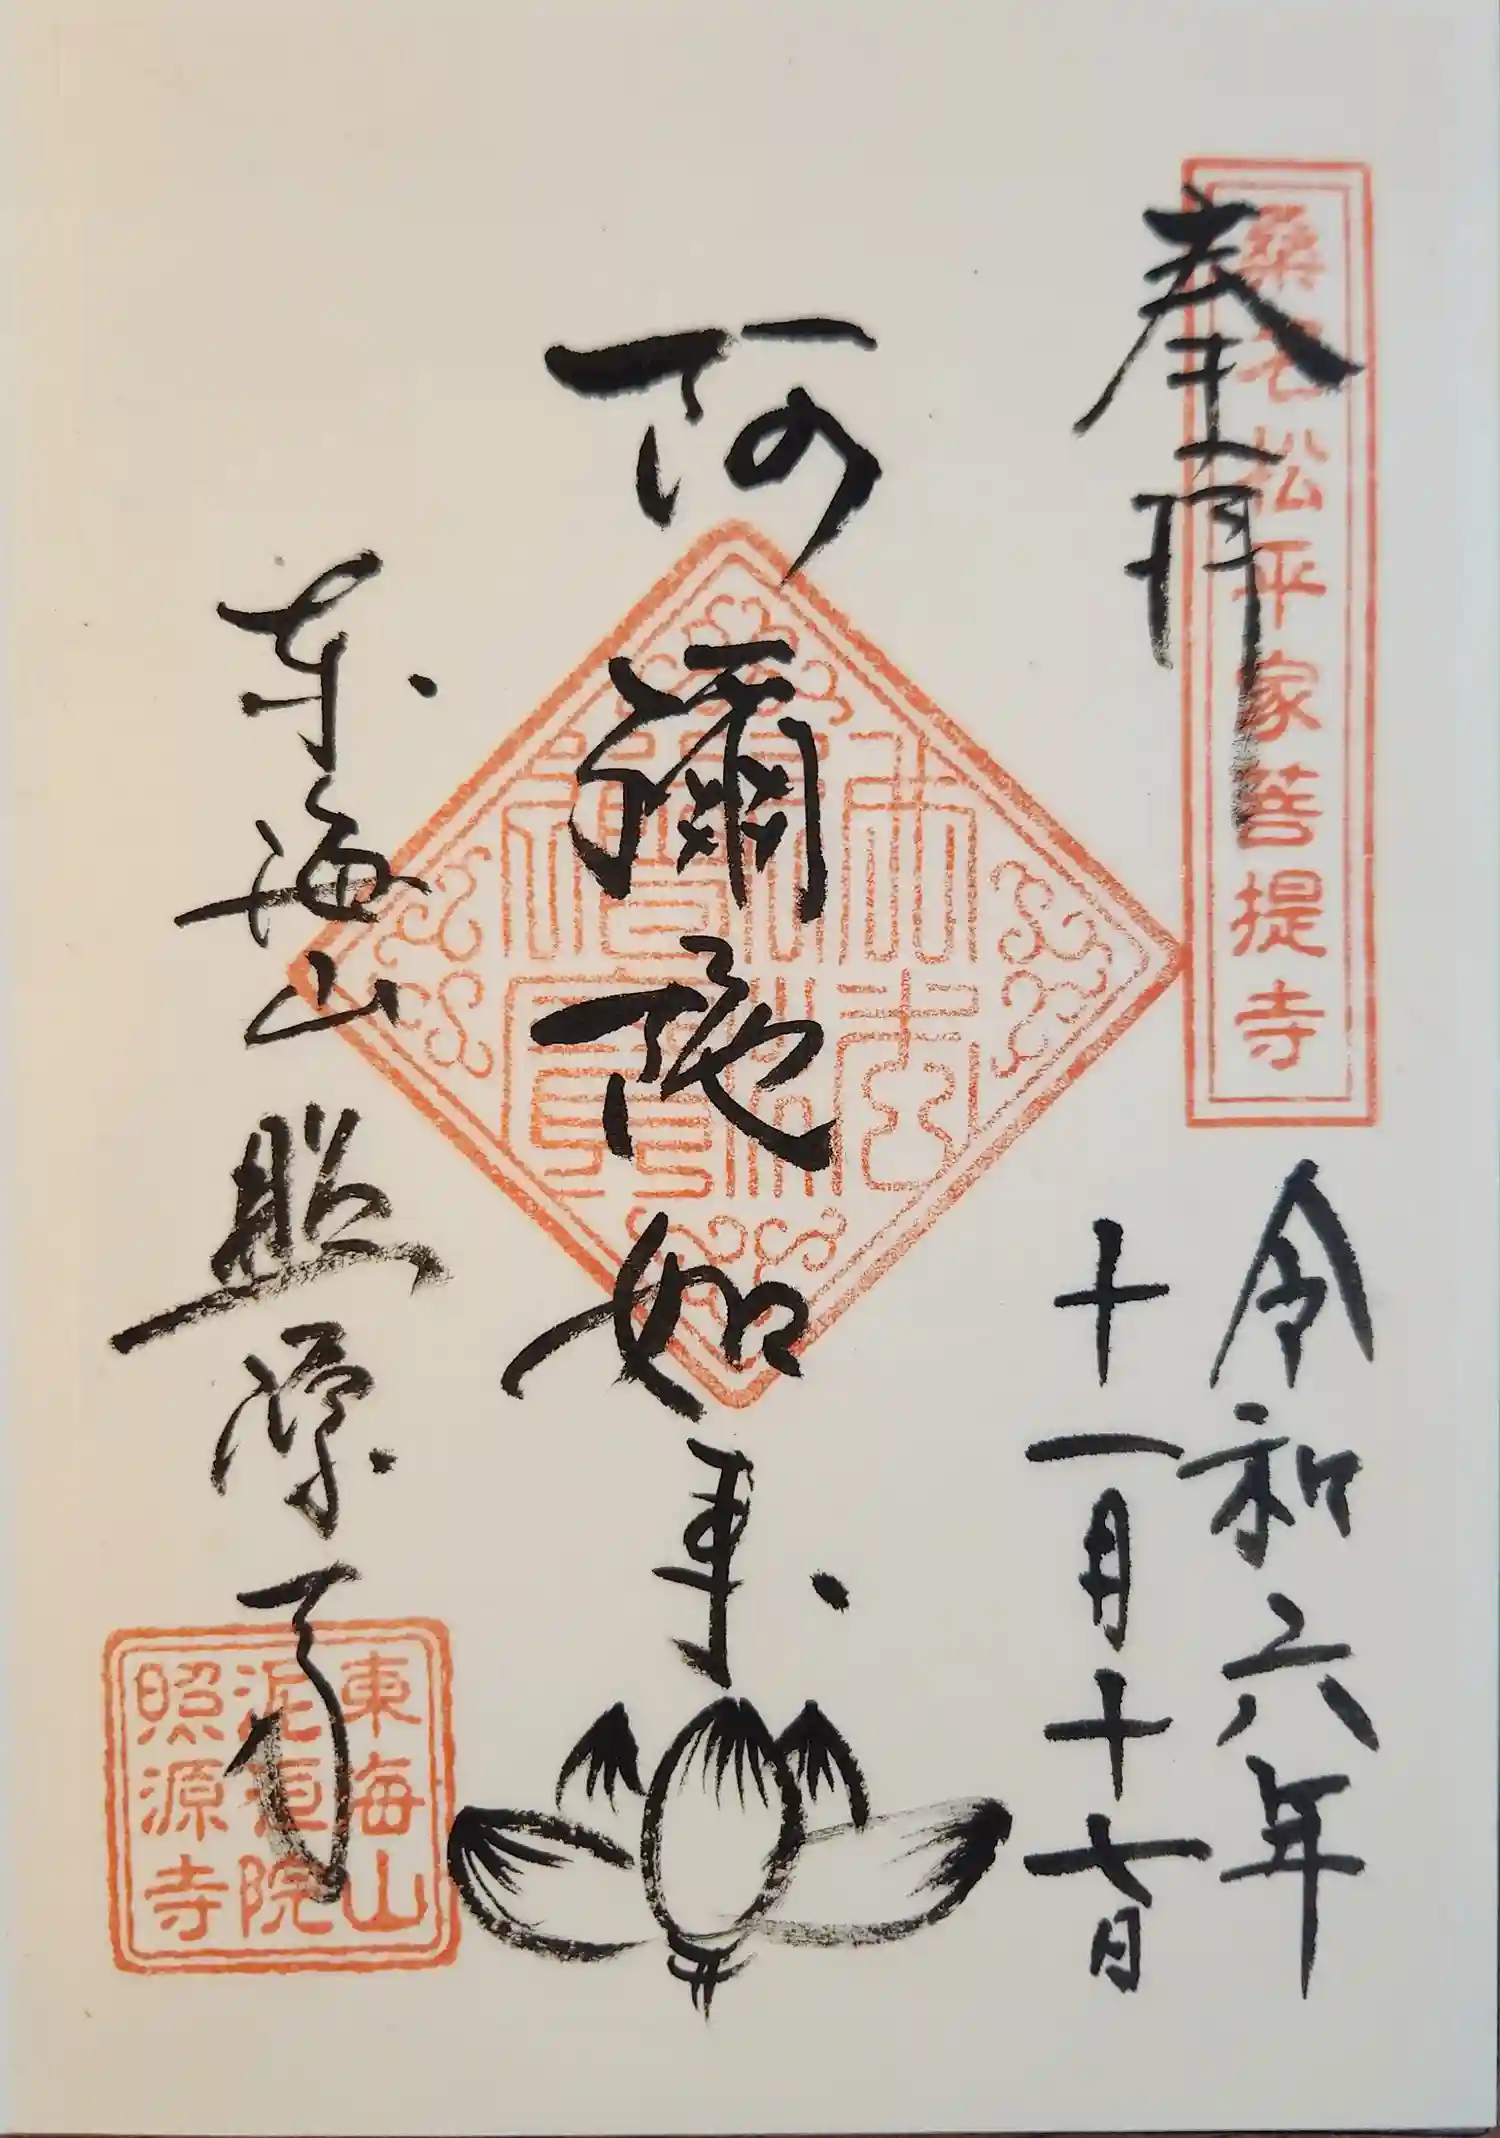 奉拝
桑名松平家菩提寺
令和六年
十一月十七日
阿彌陀如来
佛法僧寳
東海山 照源寺
東海山
泥洹院
照源寺